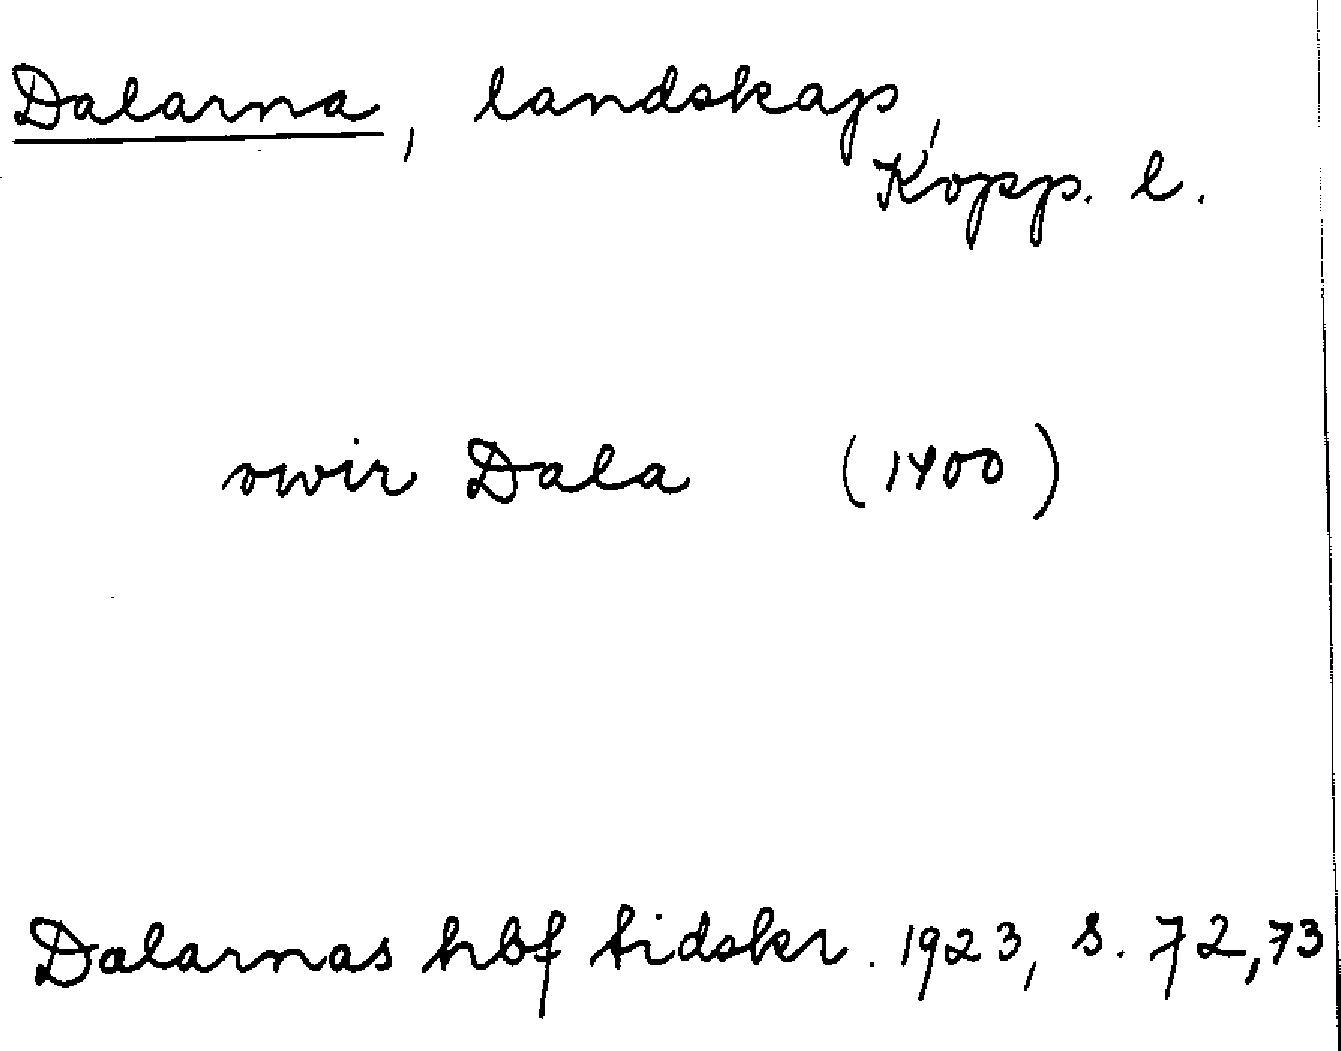 Dalarna, landskap,
Kopp. l.
owir Dala (1400)
Dalarnas hbf tidskr. 1923, s. 72,73